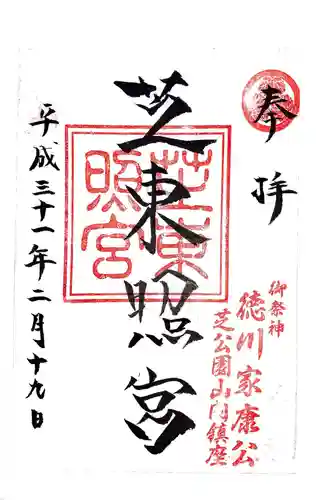 奉拝
御祭神
徳川家康公
芝公園山内鎮座
芝東照宮
芝東照宮
平成三十一年二月十九日